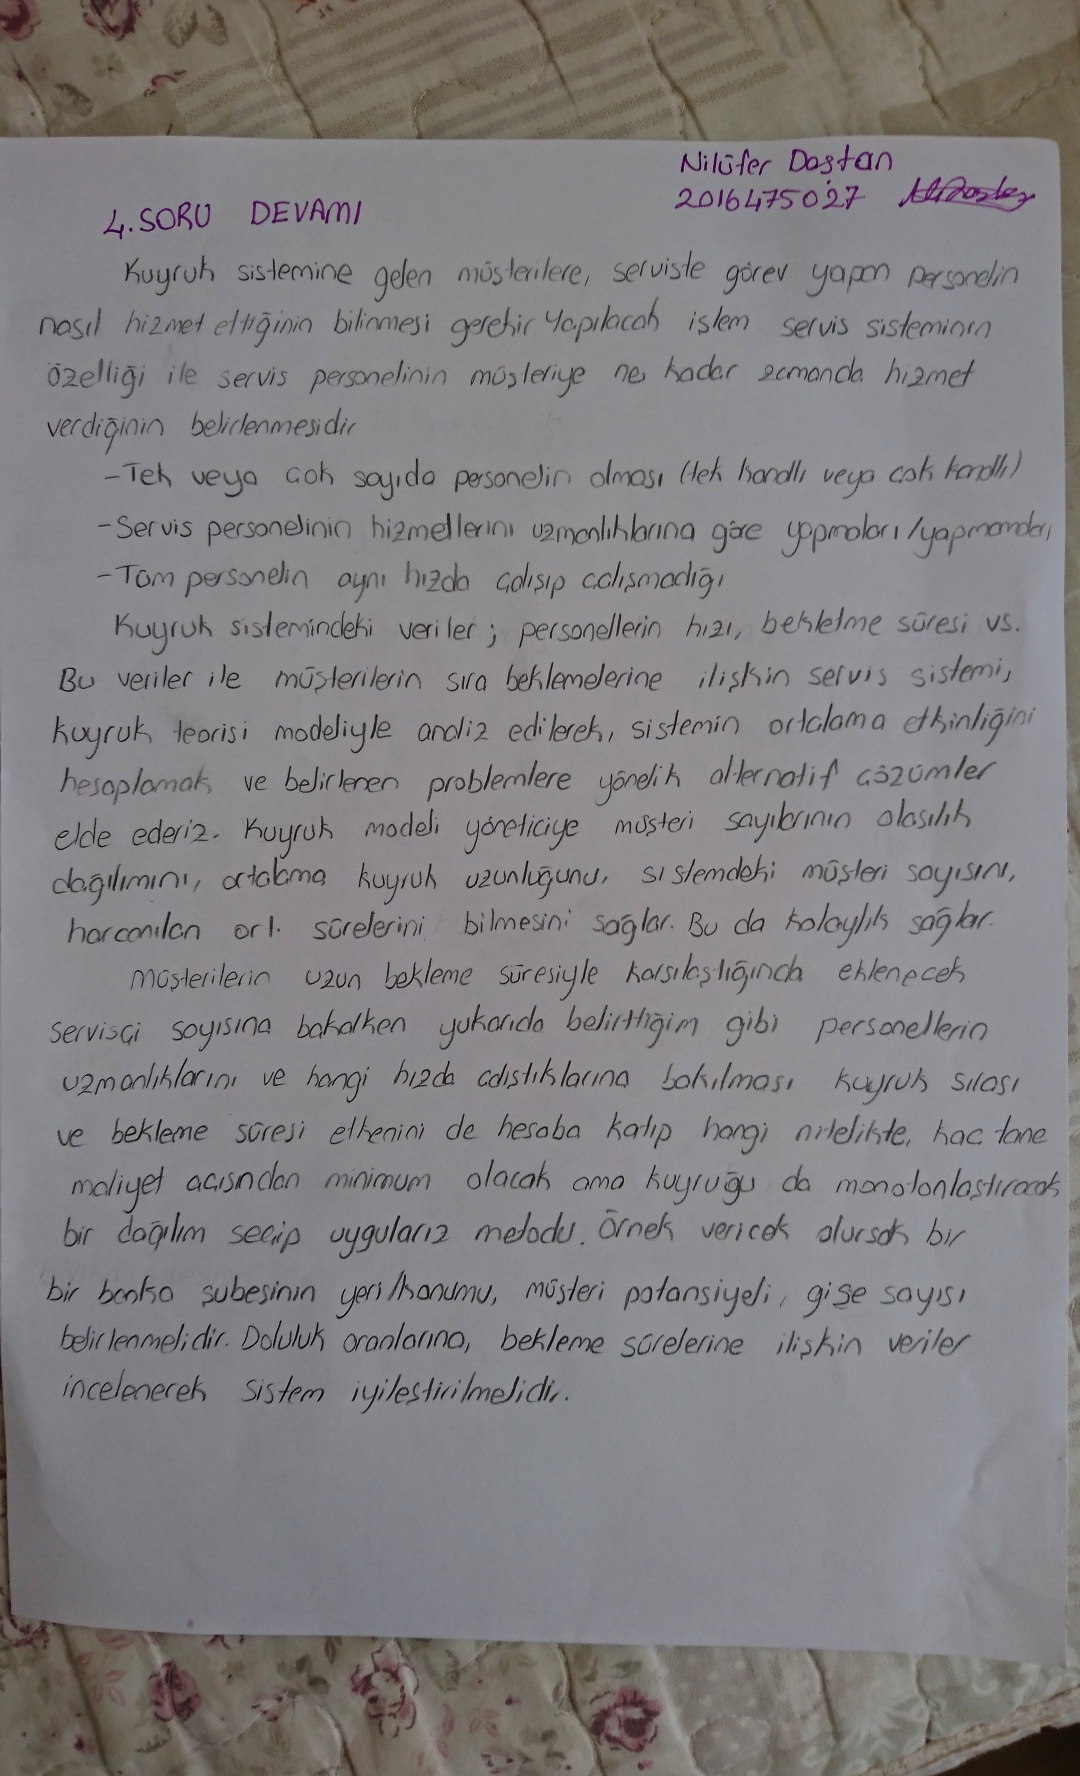 Nilüfer Daştan
2016475027
4. SORU DEVAMI
Kuyruk sistemine gelen müşterilere, serviste görev yapan personelin
nasıl hizmet ettiğinin bilinmesi gerekir. Yapılacak işlem servis sisteminin
özelliği ile servis personelinin müşteriye ne kadar zamanda hizmet
verdiğinin belirlenmesidir
-Tek veya çok sayıda personelin olması (tek kanallı veya çok kanallı)
-Servis personelinin hizmetlerini uzmanlıklarına göre yapmaları/yapmamaları
-Tüm personelin aynı hızda çalışıp çalışmadığı
Kuyruk sistemindeki veriler; personellerin hızı, bekletme süresi vs.
Bu veriler ile müşterilerin sıra beklemelerine ilişkin servis sistemi,
kuyruk teorisi modeliyle analiz edilerek, sistemin ortalama etkinliğini
hesaplamak ve belirlenen problemlere yönelik alternatif çözümler
elde ederiz. Kuyruk modeli yöneticiye müşteri sayılarının olasılık
dağılımını, ortalama kuyruk uzunluğunu, sistemdeki müşteri sayısını,
harcanılan ort. sürelerini bilmesini sağlar. Bu da kolaylık sağlar.
Müşterilerin uzun bekleme süresiyle karşılaştığında eklenecek
servisçi sayısına bakarken yukarıda belirttiğim gibi personellerin
uzmanlıklarını ve hangi hızda çalıştıklarına bakılması kuyruk sırası
ve bekleme süresi etkenini de hesaba katıp hangi nitelikte, kaç tane
maliyet açısından minimum olacak ama kuyruğu da monotonlaştıracak
bir dağılım seçip uygularız metodu. Örnek vericek olursak bir
bir banka şubesinin yeri/konumu, müşteri potansiyeli, gişe sayısı
belirlenmelidir. Doluluk oranlarına, bekleme sürelerine ilişkin veriler
incelenerek sistem iyileştirilmelidir.